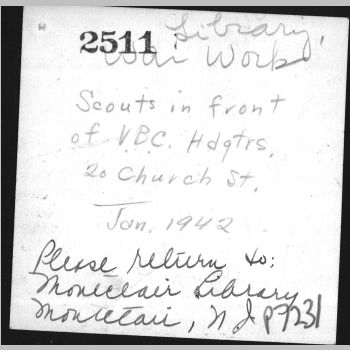 2511 Library,
War Work
Scouts in front
of VBC. Hdqtrs.
20 Church St.
Jan. 1942
Please return to:
Montclair Library
Montclair, N J P7231